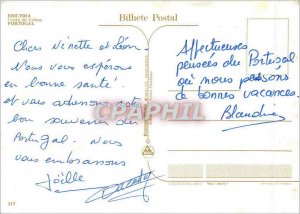 ERICEIRA
Costa de Lisboa
PORTUGAL
Bilhete Postal
Chers Ninette et Léon.
Nous vous espérons
en bonne santé
et vous adressons
bon souvenir du
Portugal. Nous
vous embrassons
Joëlle
Affectueuses
pensées du Portugal
où nous passons
de bonnes vacances.
Blandine
CPAPHIL.COM
319